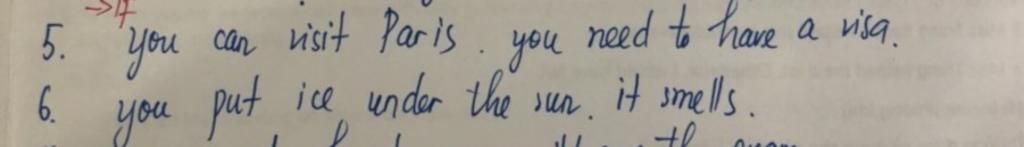 → If
5. you can visit Paris. you need to have a visa.
6. you put ice under the sun. it smells.